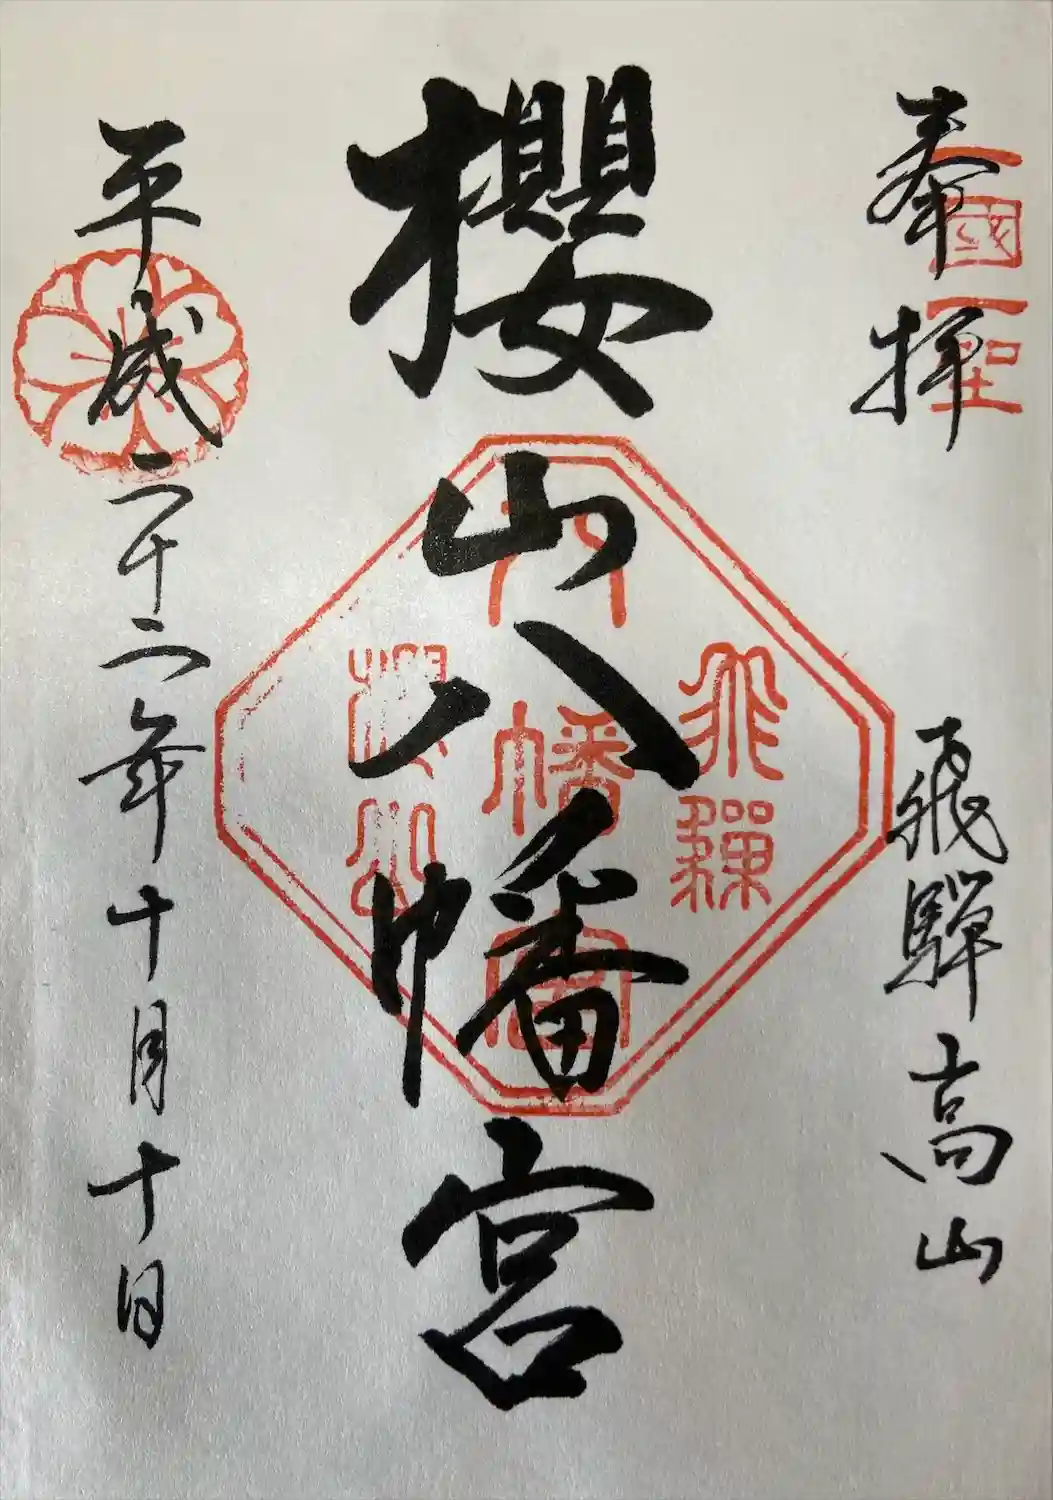 奉拝
飛騨高山
一國一
櫻山八幡宮
飛騨
八幡宮
櫻山
平成二十二年十月十日